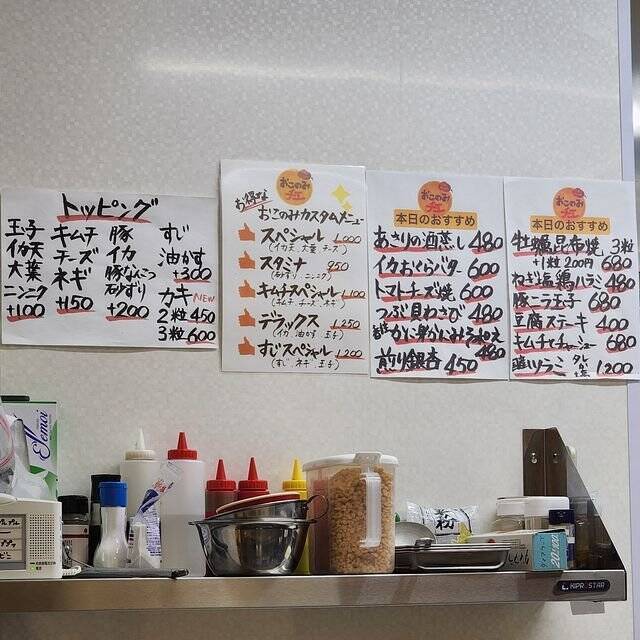 トッピング
玉子
イカ天
大葉
ニンニク
+100
キムチ
チーズ
ネギ
+150
豚
イカ
豚なんこつ
砂ずり
+200
すじ
油かす
+300
カキ NEW
2粒 450
3粒 600
お得な
おこのみ
チエ
おこのみカスタムメニュー
スペシャル 1,000
(イカ天 大葉 チーズ)
スタミナ 950
(砂ずり ニンニク)
キムチスペシャル 1,100
デラックス 1,250
(イカ 油かす 玉子)
すじスペシャル 1,200
(すじ ネギ 玉子)
おこのみ
チエ
本日のおすすめ
あさりの酒蒸し 480
イカおくらバター 600
トマトチーズ焼 600
つぶ貝わさび 480
かに身かにみそ和え 480
煎り銀杏 450
おこのみ
チエ
本日のおすすめ
牡蠣昆布焼 3粒
+1粒200円 680
ねぎ塩鶏ハラミ 480
豚ニラ玉子 680
豆腐ステーキ 400
キムチチャーシュー 680
塩 1,200
粉
20,500
KIPROSTAR